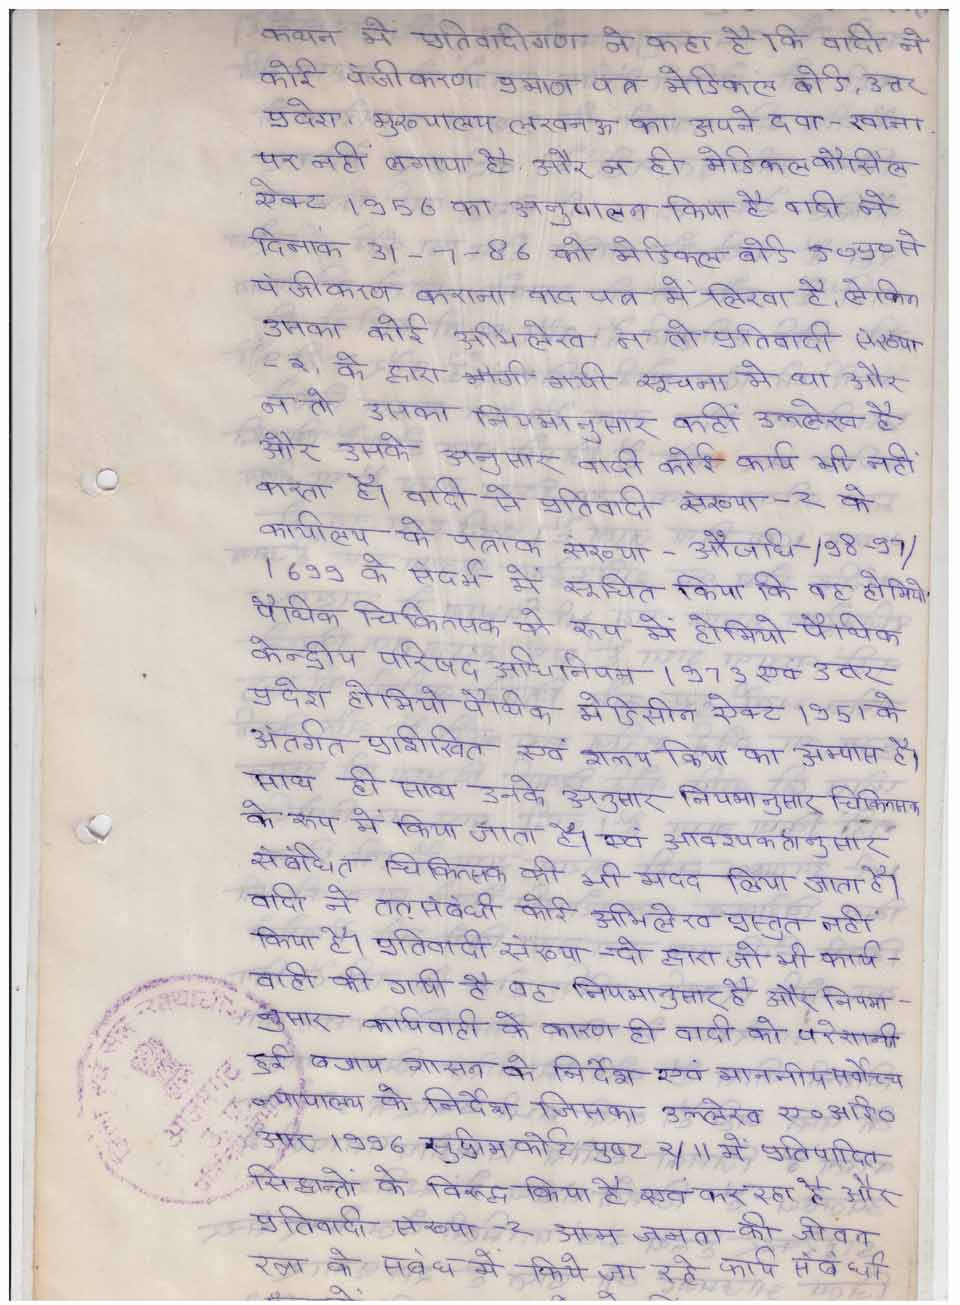 कथन में प्रतिवादीगण ने कहा है कि वादी ने
कोई पंजीकरण प्रमाण पत्र मेडिकल बोर्ड, उत्तर
प्रदेश, मुख्यालय लखनऊ का अपने दवा-खाना
पर नहीं लगाया है और न ही मेडिकल कौंसिल
ऐक्ट 1956 का अनुपालन किया है वादी ने
दिनांक 31-7-86 को मेडिकल बोर्ड उ०प्र० से
पंजीकरण कराना वाद पत्र में लिखा है, लेकिन
उसका कोई अभिलेख न तो प्रतिवादी संख्या
-२, के द्वारा मांगी गयी सूचना में था और
न तो उसका नियमानुसार कहीं उल्लेख है
और उसके अनुसार वादी कोई कार्य भी नहीं
करता है। वादी से प्रतिवादी संख्या -2 के
कार्यालय के पत्रांक संख्या - औषधि-/98-99/
1699 के संदर्भ में सूचित किया कि वह होमियो
पैथिक चिकित्सक के रूप में होमियो पैथिक
केन्द्रीय परिषद अधिनियम 1973 एवं उत्तर
प्रदेश होमियो पैथिक मेडिसीन ऐक्ट 1951 के
अंतर्गत प्रशिक्षित एवं शल्य क्रिया का अभ्यास है।
साथ ही साथ उनके अनुसार नियमानुसार चिकित्सक
के रूप में किया जाता है। एवं आवश्यकतानुसार
संबंधित चिकित्सक की भी मदद लिया जाता है।
वादी ने तत्संबंधी कोई अभिलेख प्रस्तुत नहीं
किया है। प्रतिवादी संख्या -दो द्वारा जो भी कार्य-
वाही की गयी है वह नियमानुसार है और नियमा-
नुसार कार्यवाही के कारण ही वादी को परेशानी
हुई बजाय शासन के निर्देश एवं माननीय सर्वोच्च
न्यायालय के निर्देश जिसका उल्लेख ए०आई०
आर 1996 सुप्रीम कोर्ट पृष्ट २/11 में प्रतिपादित
सिद्धान्तों के विरूद्ध किया है एवं कर रहा है और
प्रतिवादी संख्या -२ आम जनता की जीवन
रक्षा के संबंध में किये जा रहे कार्य संबंधी